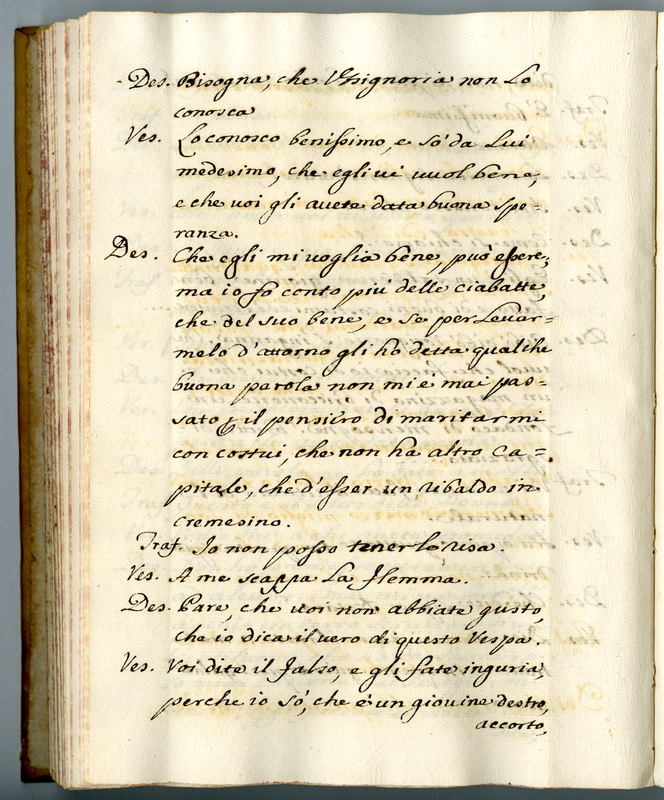 Des. Bisogna, che VSsignoria non Lo
conosca
Ves. Lo conosco benissimo, e sò da Lui
medesimo, che egli vi vuol bene,
e che voi gli avete data buona spe=
ranza.
Des. Che egli mi voglia bene, può essere,
ma io fo conto più delle ciabatte,
che del suo bene, e se per Levar=
melo d'attorno gli hò detta qualche
buona parola non mi è mai pas=
sato il pensiero di maritarmi
con costui, che non ha altro Ca=
pitale, che d'esser un ribaldo in
cremesino.
Traf. Io non posso tener le risa.
Ves. A me scappa La flemma.
Des. Pare, che voi non abbiate gusto,
che io dica il vero di questo Vespa.
Ves. Voi dite il falso, e gli fate ingiuria,
perche io sò, che è un giovine destro,
accorto,